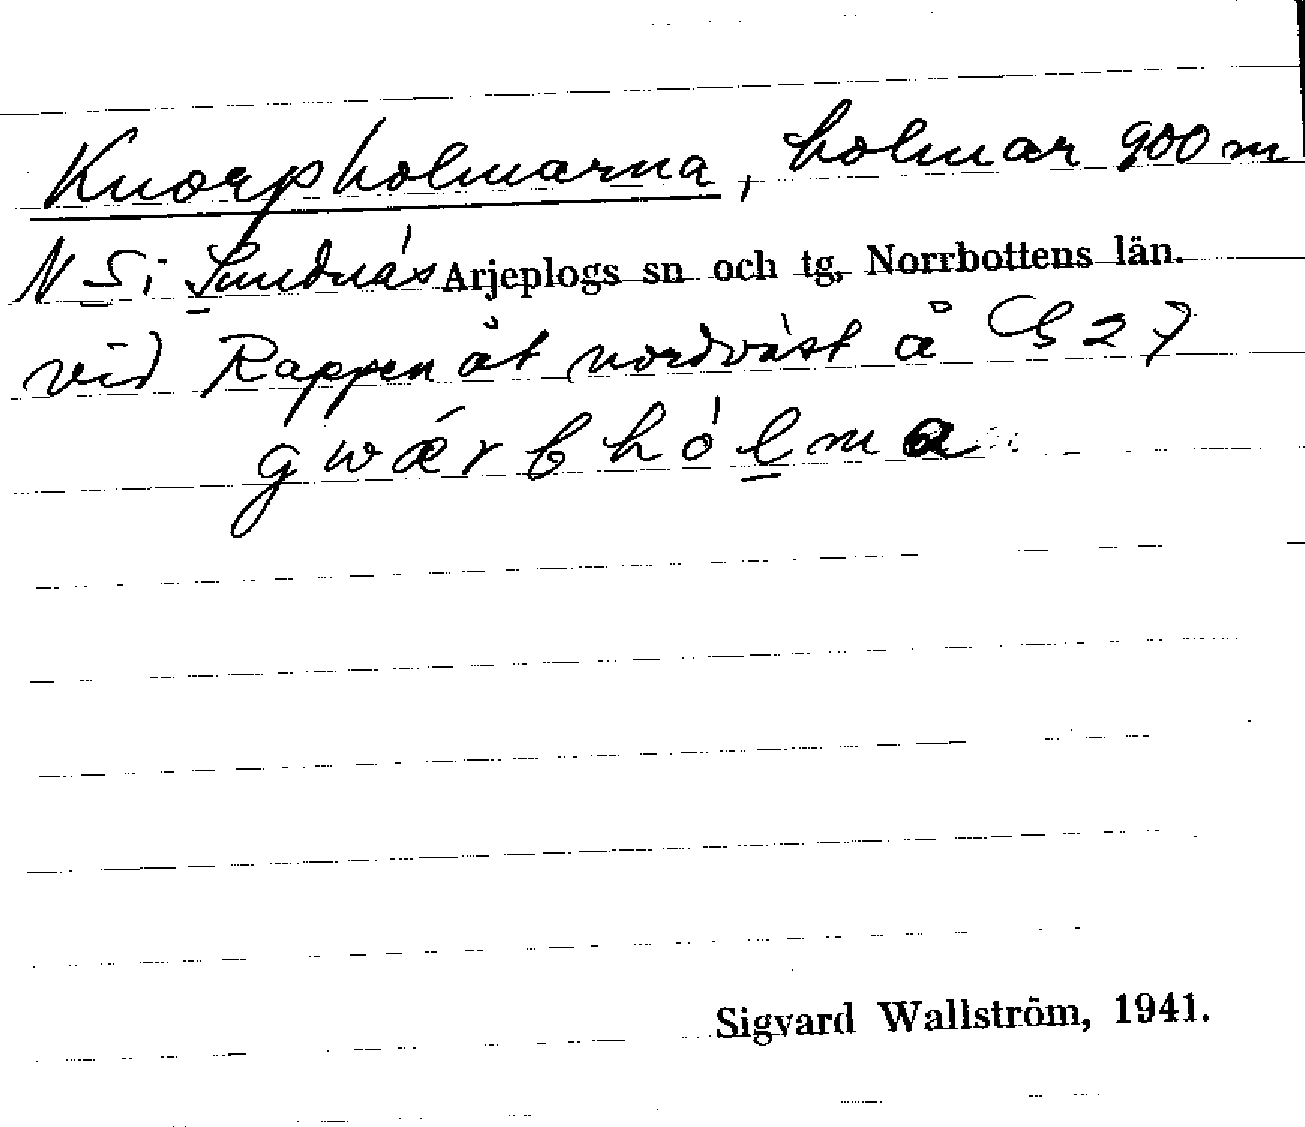 Knorpholmarna, holmar 900 m
N S i Sundnäs Arjeplogs sn och tg, Norrbottens län.
vid Rappen åt nordväst å G 27
gwǽrbhólma
Sigvard Wallström, 1941.